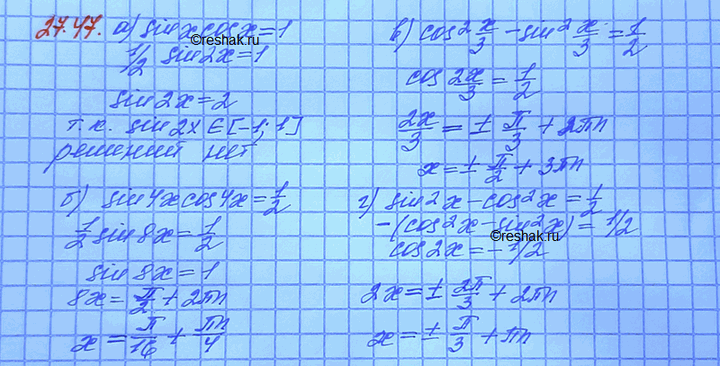 27.47. а) sin x cos x = 1
1/2 sin 2x = 1
sin 2x = 2
т.к. sin 2x ∈ [-1; 1]
решений нет
б) sin 4x cos 4x = 1/2
1/2 sin 8x = 1/2
sin 8x = 1
8x = π/2 + 2πn
x = π/16 + πn/4
в) cos² x/3 - sin² x/3 = 1/2
cos 2x/3 = 1/2
2x/3 = ± π/3 + 2πn
x = ± π/2 + 3πn
г) sin² x - cos² x = 1/2
-(cos² x - sin² x) = 1/2
cos 2x = -1/2
2x = ± 2π/3 + 2πn
x = ± π/3 + πn
©reshak.ru
©reshak.ru